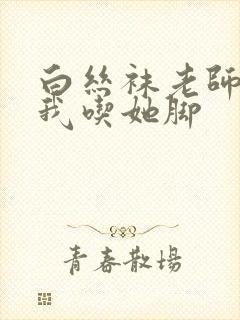 白丝袜老師
我喫她脚
青春散場